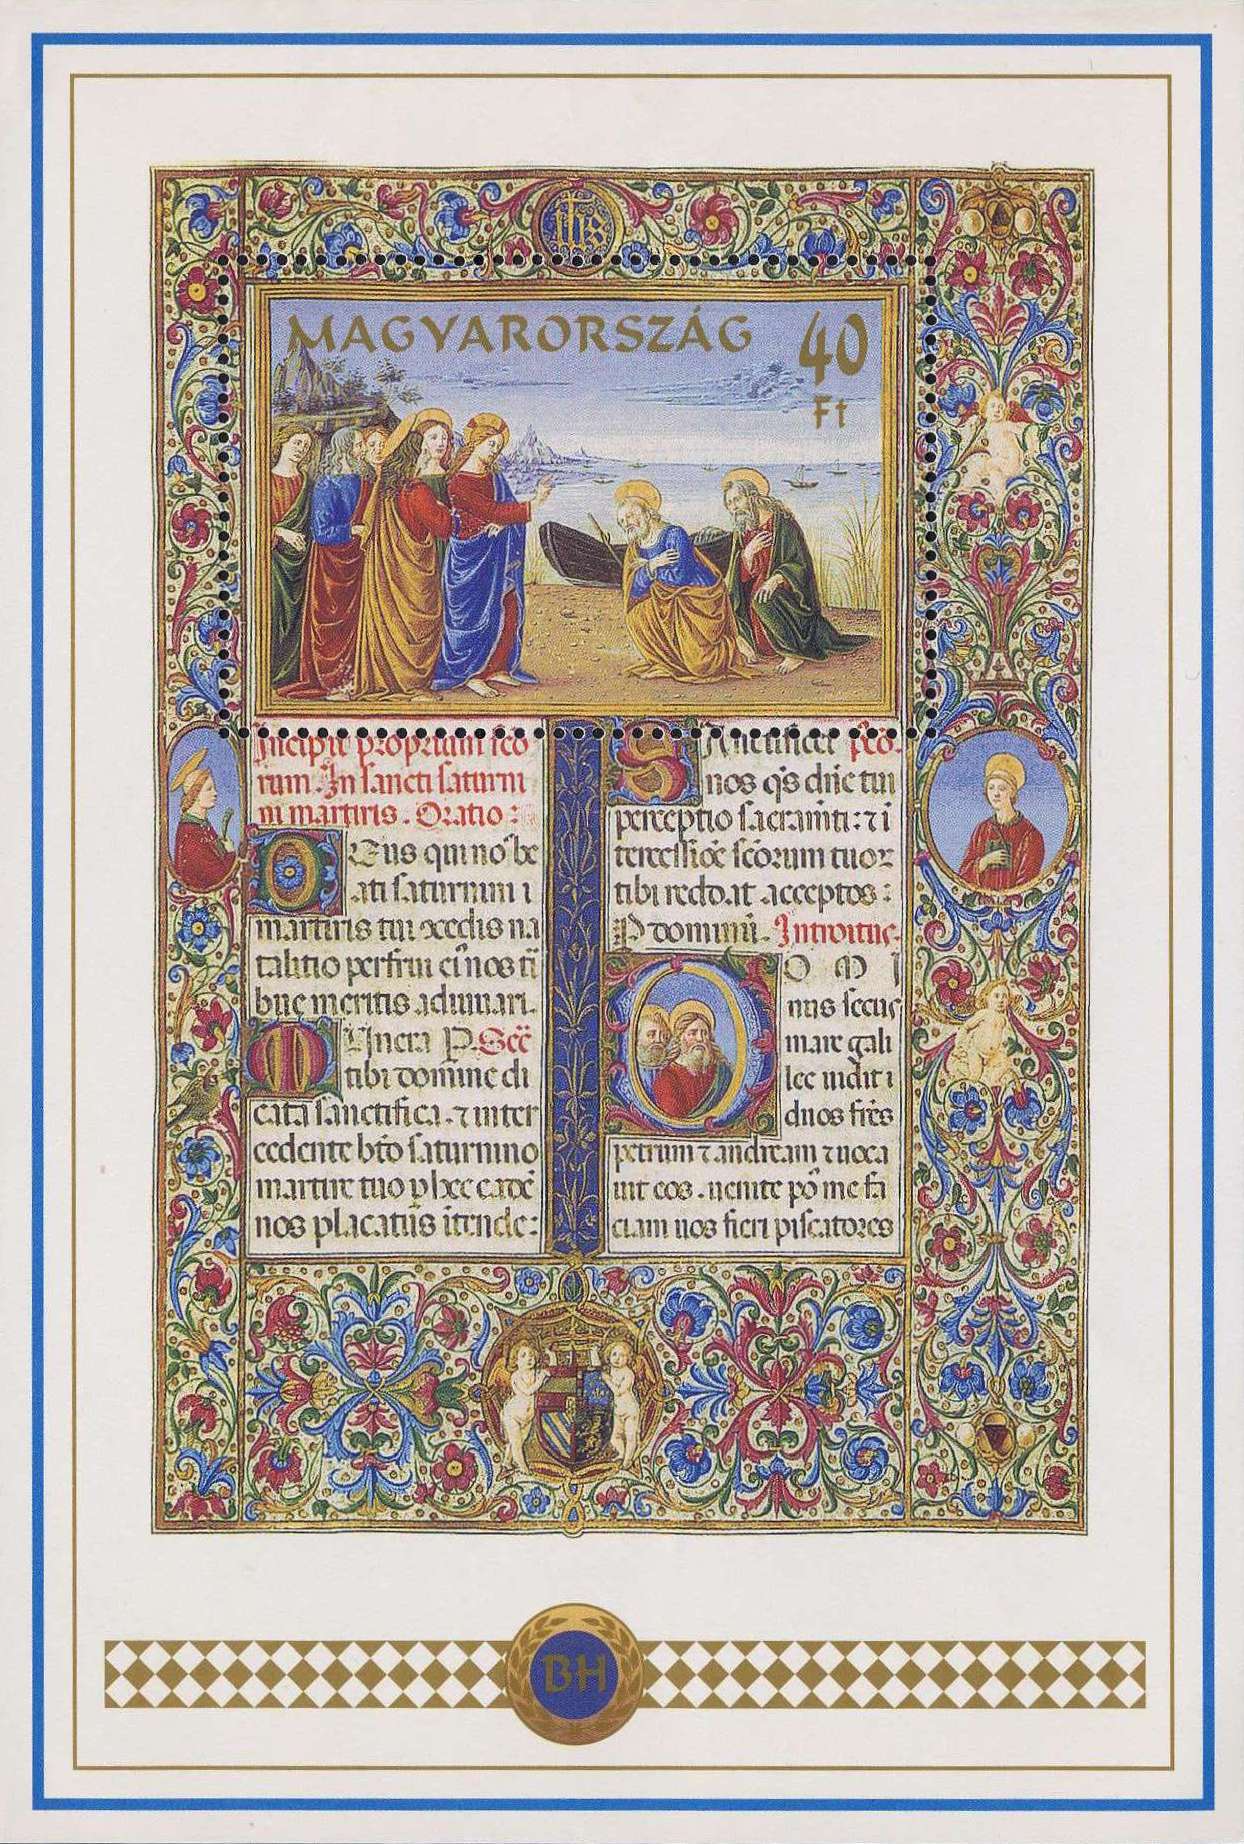 ihs
MAGYARORSZÁG 40
Ft
Incipit proprium sc̃o
rum. In sancti saturni
ni martiris. Oratio:
DEus qui nos be
ati saturnini
martiris tui
talitio perfrui eius nos
bue meritis adiuuari.
Munera P. Sec̃
tibi domine di
cata sanctifica. ⁊ inter
cedente bt̃o saturnino
martire tuo p hec eadē
nos placatus ītende:
SAnctificet
nos qs dñe tui
perceptio sacram̃ti: ⁊ ī
tercessio sc̃orum tuoꝝ
tibi reddat acceptos:
P domini. Introitus.
O M I
nus secus
mare gali
lee uidit
duos fr̃es
petrum ⁊ andream ⁊ uoca
uit eos. uenite po me fa
ciam uos fieri piscatores
BH